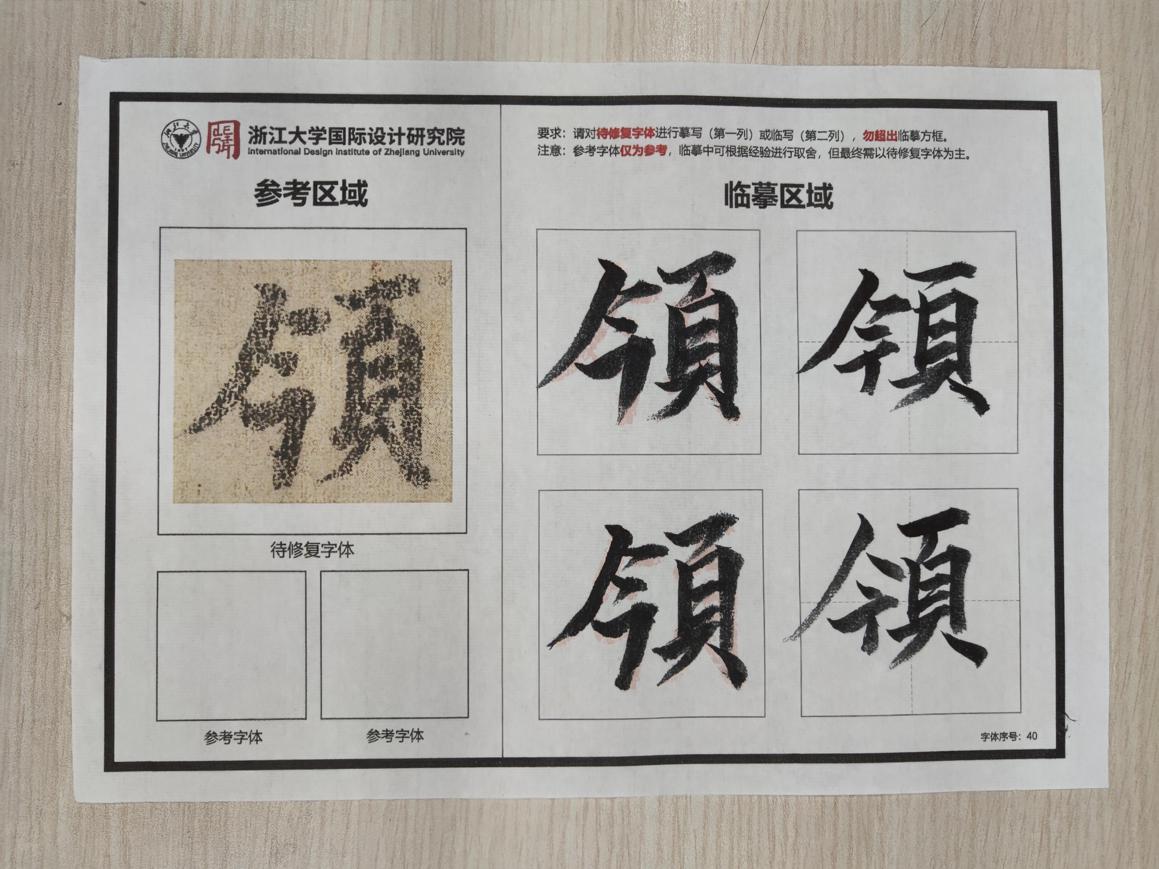 浙江大学国际设计研究院
International Design Institute of Zhejiang University
参考区域
領
待修复字体
参考字体
参考字体
要求：请对待修复字体进行摹写（第一列）或临写（第二列），勿超出临摹方框。
注意：参考字体仅为参考，临摹中可根据经验进行取舍，但最终需以待修复字体为主。
临摹区域
領 領
領 領
字体序号：40